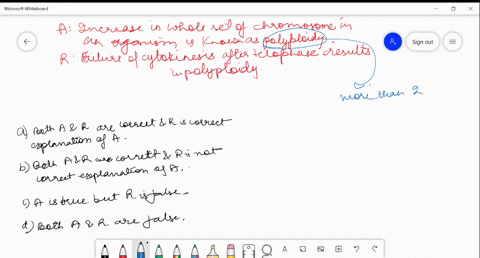 Microsoft Whiteboard
A: Increase in whole set of chromosome in
an organism is known as polyploidy.
Sign out
R: Failure of cytokinesis after telophase results
in polyploidy.
more than 2
a) Both A & R are correct & R is correct
explanation of A.
b) Both A & R are correct & R is not
correct explanation of A.
c) A is true but R is false.
d) Both A & R are false.